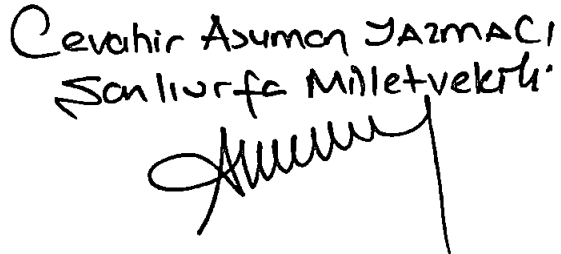 Cevahir Asuman YAZMACI
Şanlıurfa Milletvekili